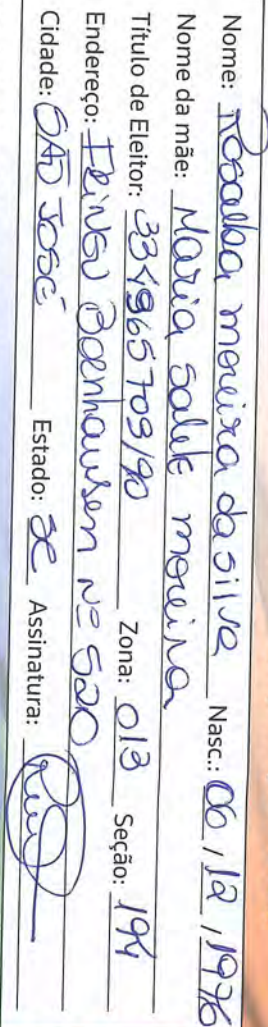 Nome: Rosalba moreira da silva Nasc.: 06/12/1976
Nome da mãe: Maria salete moreira
Título de Eleitor: 334965709/90 Zona: 013 Seção: 194
Endereço: IRiNEU Bornhausen Nº 520
Cidade: SÃO JOSÉ Estado: SC Assinatura: